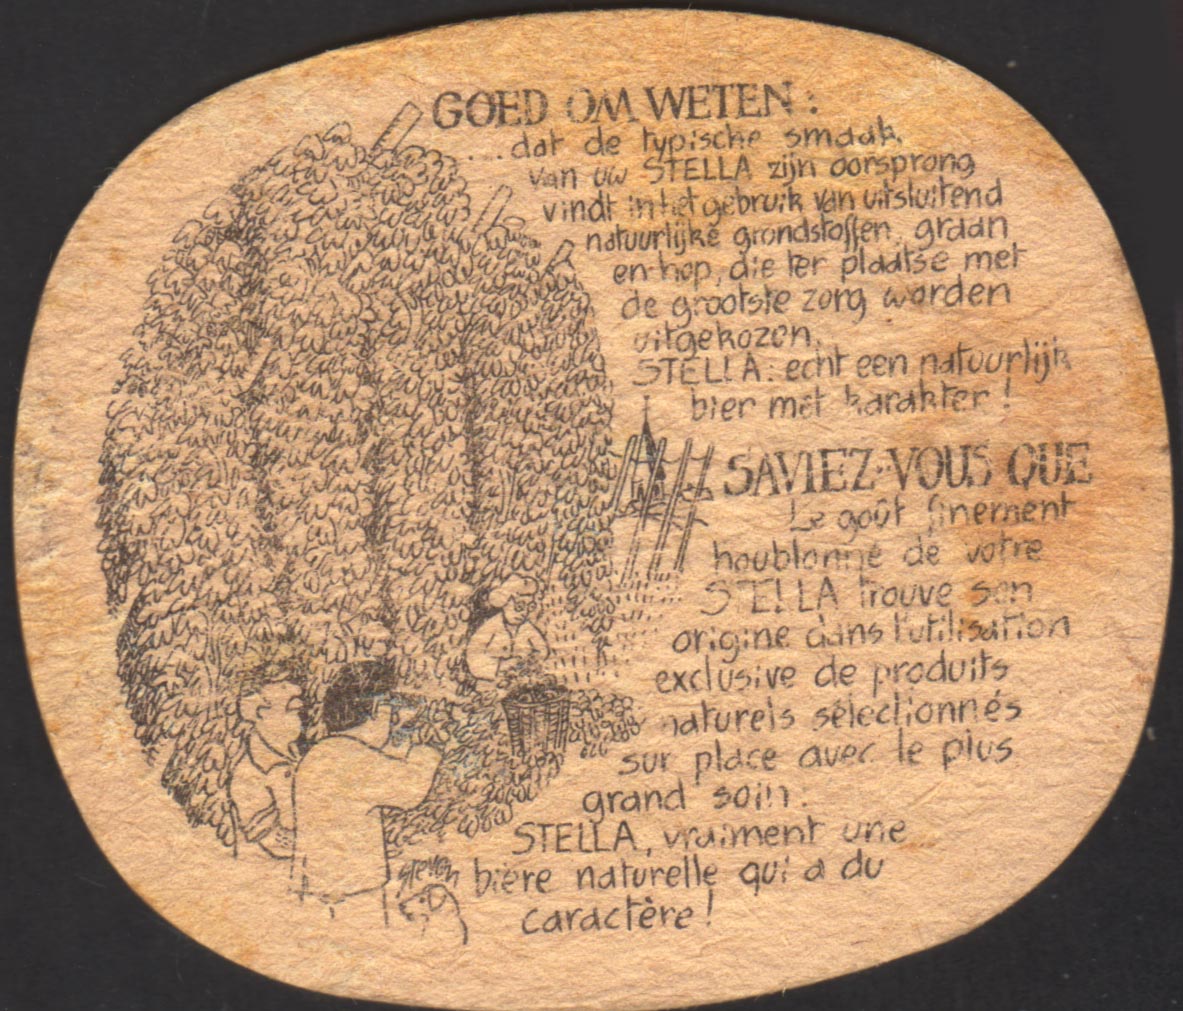 GOED OM WETEN :
... dat de typische smaak
van uw STELLA zijn oorsprong
vindt in het gebruik van uitsluitend
natuurlijke grondstoffen, graan
en hop, die ter plaatse met
de grootste zorg worden
uitgekozen.
STELLA : echt een natuurlijk
bier met karakter !
SAVIEZ-VOUS QUE
Le goût finement
houblonné de votre
STELLA trouve son
origine dans l'utilisation
exclusive de produits
naturels sélectionnés
sur place avec le plus
grand soin :
STELLA, vraiment une
bière naturelle qui a du
caractère !
steven